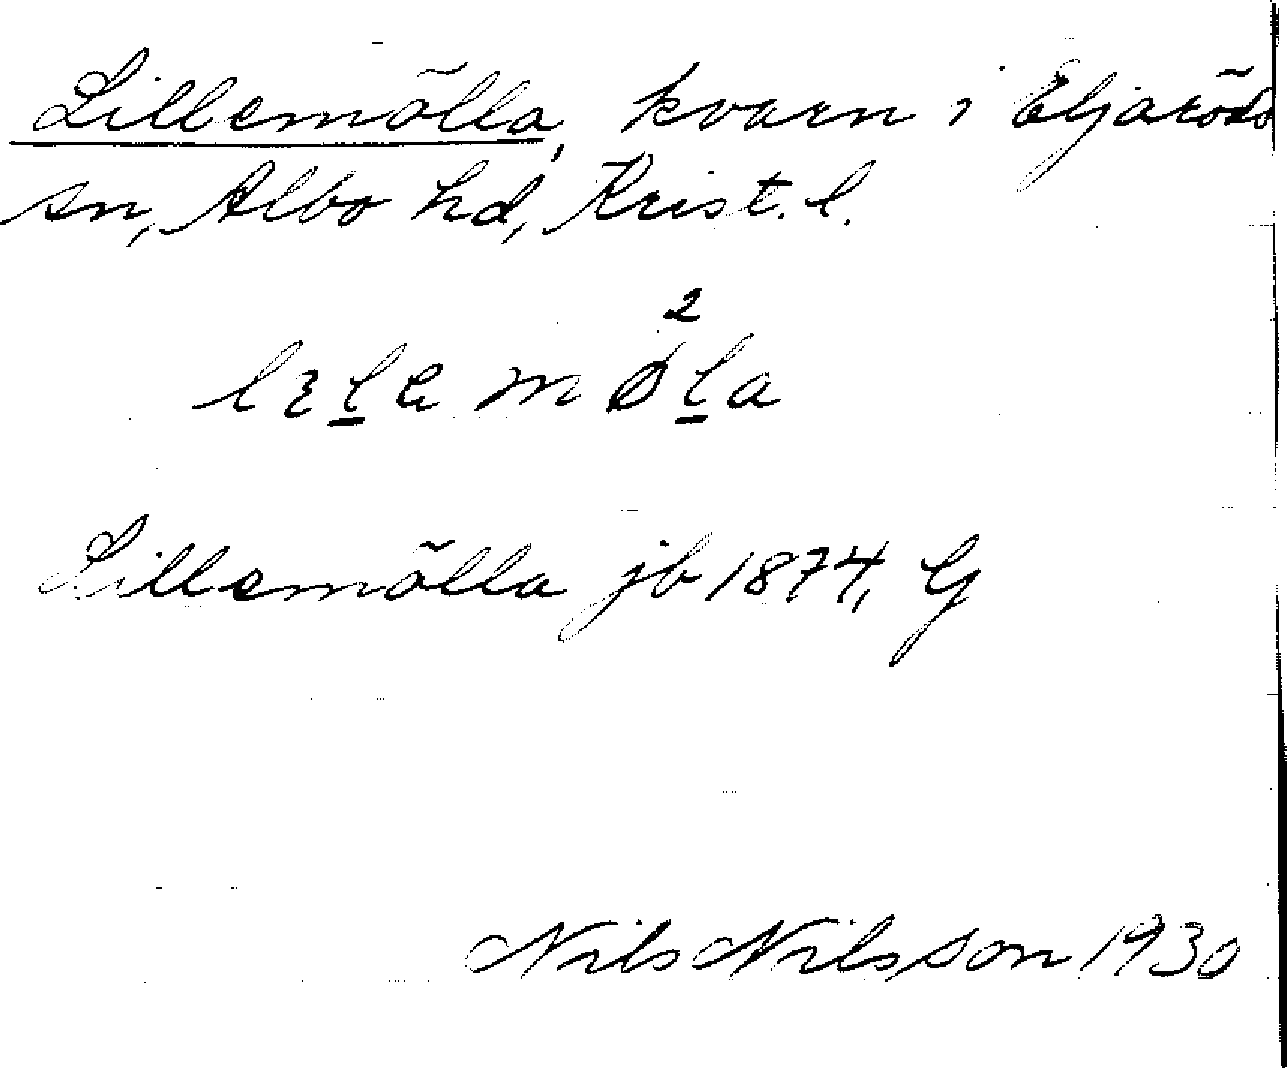 Lillemölla, kvarn i Eljaröds
sn, Albo hd, Krist. l.
Lillemölla jb 1874, G
Nils Nilsson 1930